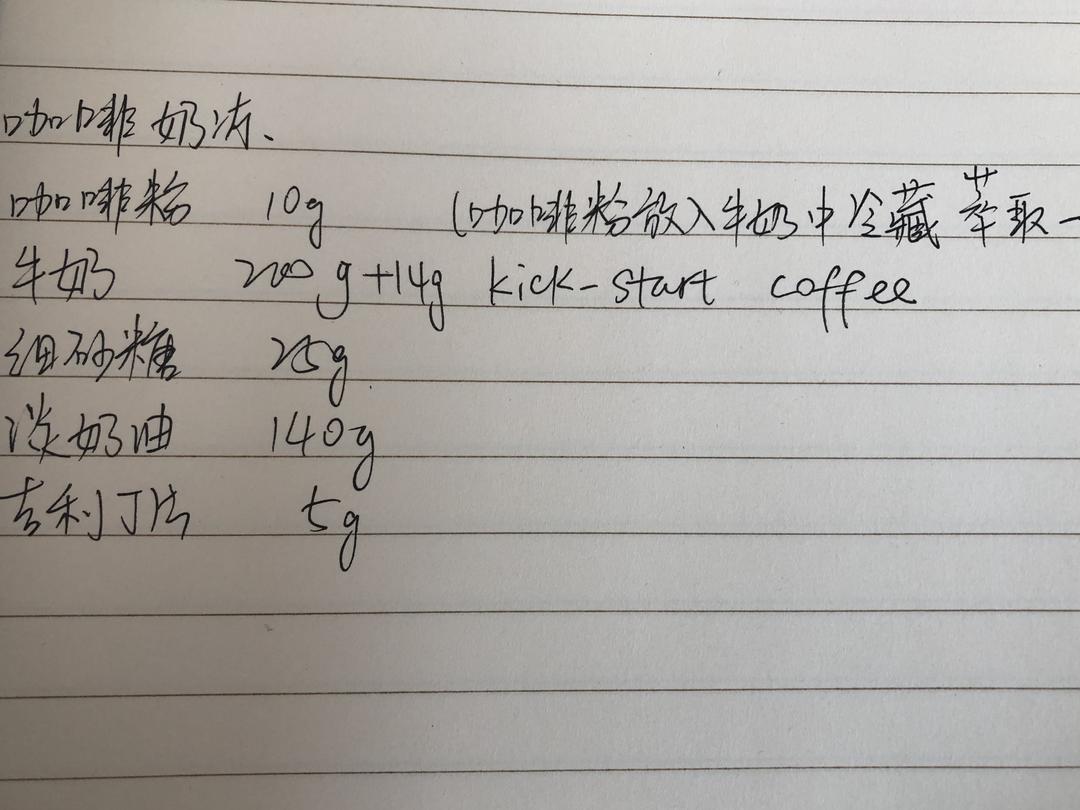 咖啡奶冻、
咖啡粉 10g (咖啡粉放入牛奶中冷藏萃取一
牛奶 200g+14g kick-start coffee
细砂糖 25g
淡奶油 140g
吉利丁片 5g